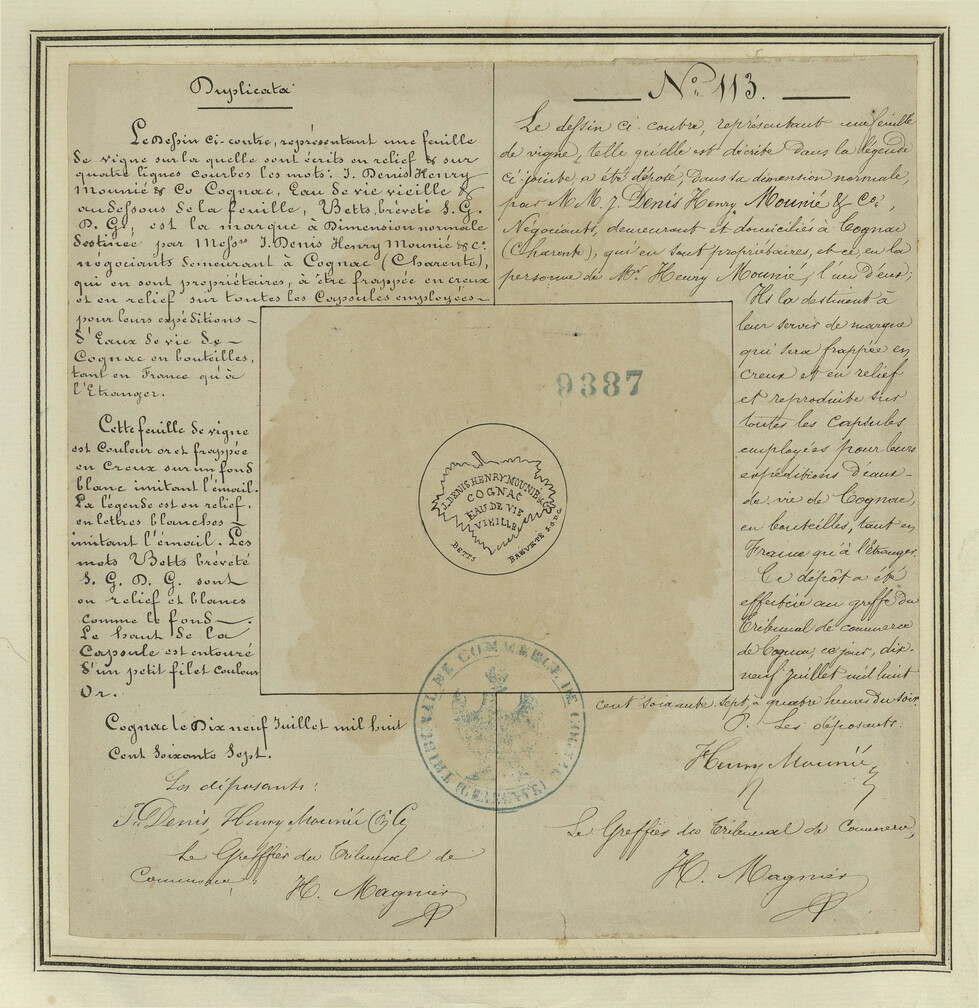 Duplicata
Le Dessin ci-contre, représentant une feuille
de vigne sur la quelle sont écrits en relief & sur
quatre lignes courbes les mots: J. Denis Henry
Mounié & Co Cognac, Eau de vie vieille &
au dessous de la feuille, Betts, brévété S. G.
D. G., est la marque à Dimension normale
destinée par Messrs J. Denis Henry Mounié & Cie
négociants demeurant à Cognac (Charente),
qui en sont propriétaires, à être frappée en creux
et en relief sur toutes les Capsules employées
pour leurs expéditions
d'Eaux de vie de
Cognac en bouteilles,
tant en France qu'à
l'Etranger.
Cette feuille de vigne
est Couleur or et frappée
en Creux sur un fond
blanc imitant l'émail.
La légende est en relief,
en lettres blanches
imitant l'émail. Les
mots Betts brévété
S. G. D. G. sont
en relief et blancs
comme le fond.
Le haut de la
Capsule est entouré
d'un petit filet couleur
Or.
Cognac le Dix neuf Juillet mil huit
Cent Soixante Sept.
Les déposants:
J. Denis, Henry Mounié & Cie
Le Greffier du Tribunal de
Commerce:
H. Magnier
No 113.
Le dessin ci-contre, représentant une feuille
de vigne, telle qu'elle est décrite dans la légende
ci-jointe a été déposé, dans sa dimension normale,
par M M. J. Denis Henry Mounié & Co,
Négociants, demeurant et domiciliés à Cognac
(Charente), qui en sont propriétaires, et ce, en la
personne de Mr. Henry Mounié, l'un d'eux;
Ils la destinent à
leur servir de marque
qui sera frappée en
creux et en relief
et reproduite sur
toutes les capsules
employées pour leurs
expéditions d'eaux-
de vie de Cognac,
en bouteilles, tant en
France qu'à l'étranger.
Ce dépôt a été
effectué au greffe du
Tribunal de commerce
de Cognac, ce jour, dix-
neuf juillet mil huit
cent soixante sept, à quatre heures du soir.
P. Les déposants:
Henry Mounié
Le Greffier du Tribunal de Commerce,
H. Magnier
9387
J. DENIS HENRY MOUNIÉ & Co
COGNAC
EAU DE VIE
VIEILLE
BETTS BREVETÉ S.G.D.G.
TRIBUNAL DE COMMERCE DE COGNAC
(CHARENTE)